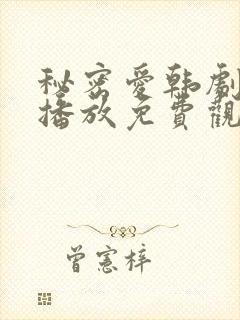 秘密愛韩劇
播放免費觀
曾憲梓